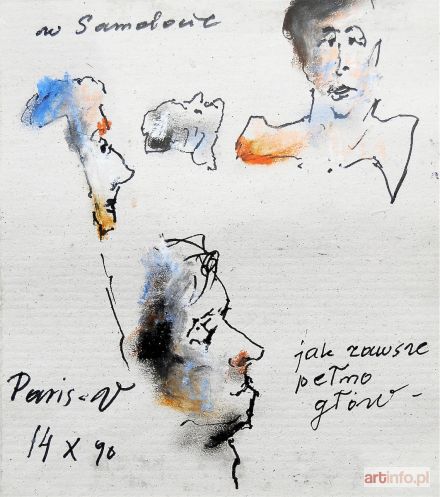 w Samolocie
Paris-
14 X 90
jak zawsze
pełno
głów -
artinfo.pl